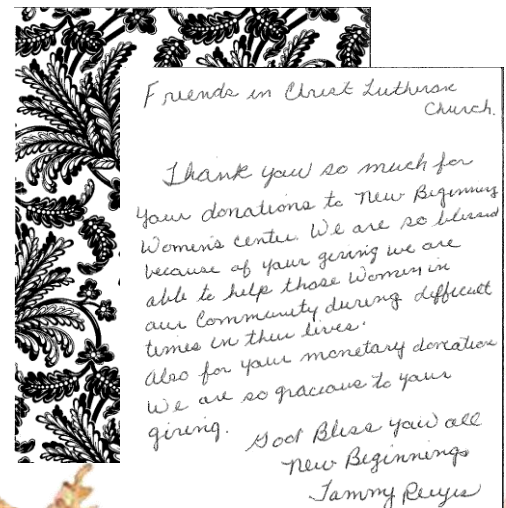 Friends in Christ Lutheran
Church.
Thank you so much for
your donations to New Beginning
Women's center. We are so blessed
because of your giving we are
able to help those Women in
our Community during difficult
times in their lives.
Also for your monetary donation
We are so gracious to your
giving.
God Bless you all
New Beginnings
Tammy Reyes